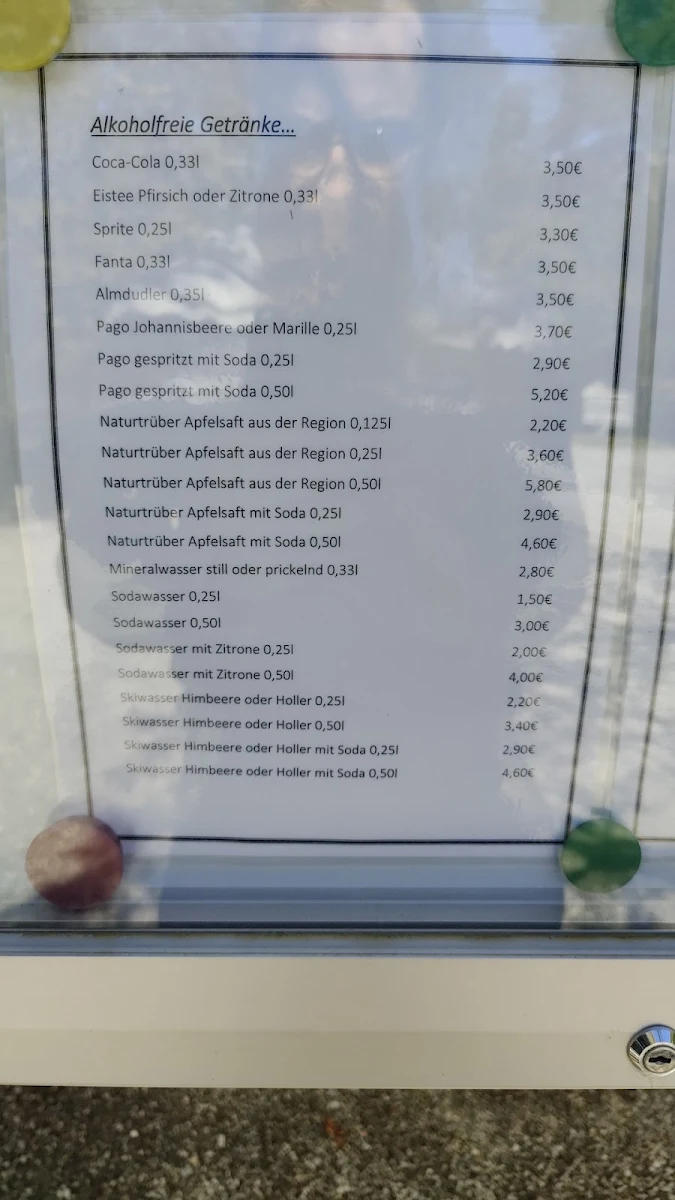 Alkoholfreie Getränke...
Coca-Cola 0,33l 3,50€
Eistee Pfirsich oder Zitrone 0,33l 3,50€
Sprite 0,25l 3,30€
Fanta 0,33l 3,50€
Almdudler 0,35l 3,50€
Pago Johannisbeere oder Marille 0,25l 3,70€
Pago gespritzt mit Soda 0,25l 2,90€
Pago gespritzt mit Soda 0,50l 5,20€
Naturtrüber Apfelsaft aus der Region 0,125l 2,20€
Naturtrüber Apfelsaft aus der Region 0,25l 3,60€
Naturtrüber Apfelsaft aus der Region 0,50l 5,80€
Naturtrüber Apfelsaft mit Soda 0,25l 2,90€
Naturtrüber Apfelsaft mit Soda 0,50l 4,60€
Mineralwasser still oder prickelnd 0,33l 2,80€
Sodawasser 0,25l 1,50€
Sodawasser 0,50l 3,00€
Sodawasser mit Zitrone 0,25l 2,00€
Sodawasser mit Zitrone 0,50l 4,00€
Skiwasser Himbeere oder Holler 0,25l 2,20€
Skiwasser Himbeere oder Holler 0,50l 3,40€
Skiwasser Himbeere oder Holler mit Soda 0,25l 2,90€
Skiwasser Himbeere oder Holler mit Soda 0,50l 4,60€